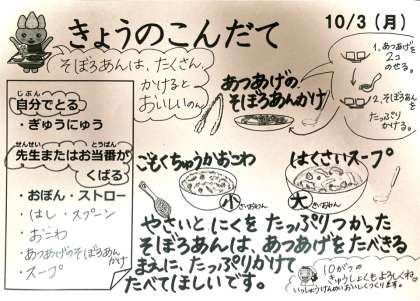 きょうのこんだて
10/3（月）
そぼろあんは、たくさん
かけると
おいしいのん
1、あつあげを
2コ
のせる。
2、そぼろあんを
たっぷり
かける。
あつあげの
そぼろあんかけ
じぶん
自分でとる
・ぎゅうにゅう
せんせい とうばん
先生またはお当番が
くばる
・おぼん・ストロー
・はし・スプーン
・おこわ
・あつあげのそぼろあん
かけ
・スープ
ごもくちゅうかおこわ
小
さいおわん
はくさいスープ
大
きいおわん
やさいと にくを たっぷりつかった
そぼろあんは、あつあげを たべきる
まえに、たっぷりかけて
たべてほしいです。
10がつの
きゅうしょくも よろしくね。
いっしょうけんめいおいしくつくります。